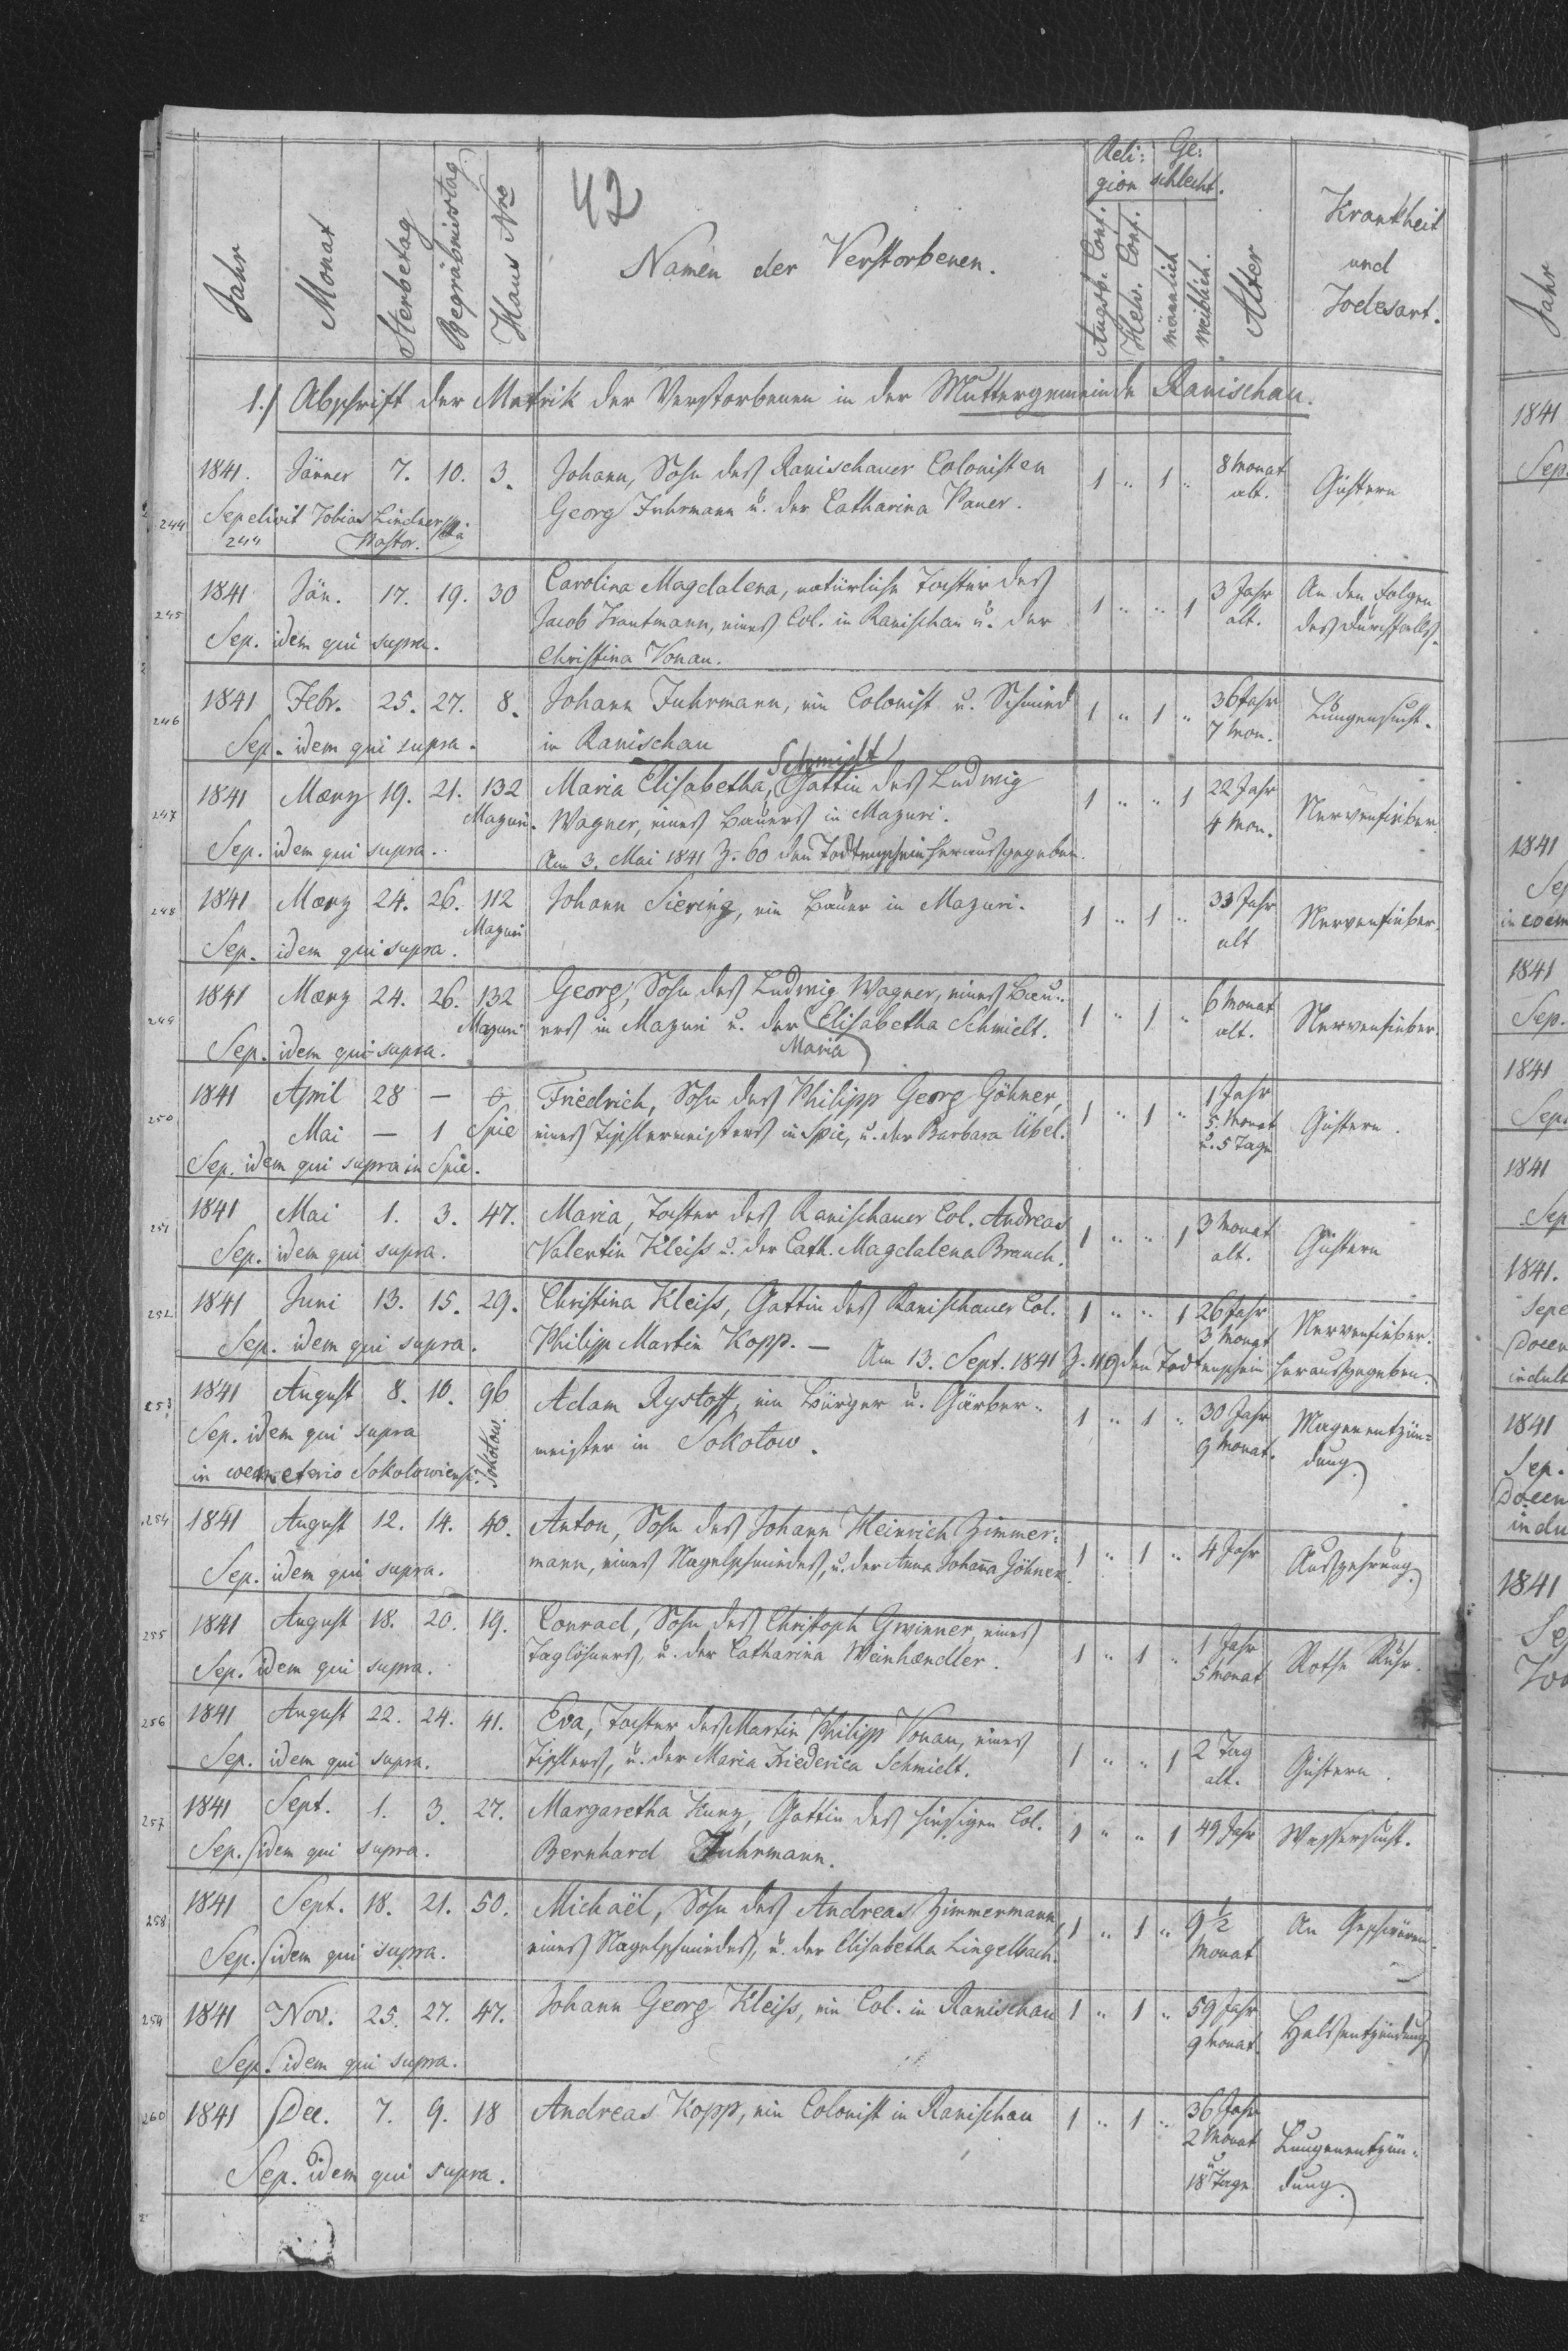 42
Jahr
Monat
Sterbetag
Begräbnisstag
Haus Nro
Namen der Verstorbenen.
Reli: gion
Ge: schlecht.
Augsb. Conf.
Helv. Conf.
männlich
weiblich.
Alter
Krankheit
und
Todesart.
1./ Abschrift der Matrik der Verstorbenen in der Muttergemeinde Ranischau.
1841. Jänner 7. 10. 3. Johann, Sohn des Ranischauer Colonisten 1 " 1 " 8 Monat Gichtern
244 Sepelivit Tobias Lindner Georg Fuhrmann u. der Catharina Pauer. alt.
244 Pastor.
1841 Jän. 17. 19. 30 Carolina Magdalena, natürliche Tochter des 1 " " 1 3 Jahr An den Folgen
245 Jacob Trautmann, eines Col. in Ranischau u. der alt. des Durchfalls.
Sep. idem qui supra. Christina Vonau.
246 1841 Febr. 25. 27. 8. Johann Fuhrmann, ein Colonist u. Schmied 1 " 1 " 36 Jahr Lungensucht.
Sep. idem qui supra. in Ranischau 7 Mon.
Schmidt
247 1841 Mærz 19. 21. 132 Maria Elisabetha, Gattin des Ludwig 1 " " 1 22 Jahr Nervenfieber.
Mazuri. Wagner, eines Bauers in Mazuri. 4 Mon.
Sep. idem qui supra. Am 3. Mai 1841 Z. 60 den Todtenschein herausgegeben.
248 1841 Mærz 24. 26. 112 Johann Siering, ein Bauer in Mazuri. 1 " 1 " 33 Jahr Nervenfieber.
Sep. idem qui supra. Mazuri alt
1841 Mærz 24. 26. 132 Georg, Sohn des Ludwig Wagner, eines Bau= 1 " 1 " 6 Monat Nervenfieber.
249 Mazuri ers in Mazuri u. der Elisabetha Schmidt. alt.
Sep. idem qui supra. Maria
250 1841 April 28 — Friedrich, Sohn des Philipp Georg Göhner, 1 " 1 " 1 Jahr Gichtern.
Mai — 1 Spie eines Tischlermeisters in Spie, u. der Barbara Übel. 5 Monat
Sep. idem qui supra in Spie. u. 5 Tage
251 1841 Mai 1. 3. 47. Maria, Tochter des Ranischauer Col. Andreas 1 " " 1 3 Monat Gichtern
Sep. idem qui supra. Valentin Kleiss u. der Cath. Magdalena Brauch. alt.
252 1841 Juni 13. 15. 29. Christina Kleiss, Gattin des Ranischauer Col. 1 " " 1 26 Jahr Nervenfieber.
Sep. idem qui supra. Philipp Martin Kopp. — 3 Monat
Am 13. Sept. 1841 Z. 119 den Todtenschein herausgegeben.
253 1841 August 8. 10. 96 Adam Rystoff, ein Bürger u. Gärber= 1 " 1 " 30 Jahr Magenentzün=
Sep. idem qui supra Sokolow. meister in Sokolow. 9 Monat. dung.
in coemeterio Sokolowiensi.
254 1841 August 12. 14. 40. Anton, Sohn des Johann Heinrich Zimmer= 1 " 1 " 4 Jahr Auszehrung.
Sep. idem qui supra. mann, eines Nagelschmiedes, u. der Anna Johanna Göhner.
255 1841 August 18. 20. 19. Conrad, Sohn des Christoph Gwinner, eines 1 " 1 " 1 Jahr Rothe Ruhr.
Sep. idem qui supra. Taglöhners, u. der Catharina Weinhændler. 5 Monat
256 1841 August 22. 24. 41. Eva, Tochter des Martin Philipp Vonau, eines 1 " " 1 2 Tag Gichtern.
Sep. idem qui supra. Tischlers, u. der Maria Friederica Schmidt. alt.
257 1841 Sept. 1. 3. 27. Margaretha Kunz, Gattin des hiesigen Col. 1 " " 1 49 Jahr Wassersucht.
Sep. idem qui supra. Bernhard Fuhrmann.
258 1841 Sept. 18. 21. 50. Michaël, Sohn des Andreas Zimmermann, 1 " 1 " 9 1/2 An Geschwüren.
Sep. idem qui supra. eines Nagelschmiedes, u. der Elisabetha Lingelbach. Monat
259 1841 Nov. 25. 27. 47. Johann Georg Kleiss, ein Col. in Ranischau 1 " 1 " 59 Jahr Halsentzündung
Sep. idem qui supra. 9 Monat.
260 1841 Dec. 7. 9. 18 Andreas Kopp, ein Colonist in Ranischau 1 " 1 " 36 Jahr Lungenentzün=
2 Monat dung.
Sep. idem qui supra. u. 18 Tage
Jahr
1841
Sep.
1841
Sep
in coem
1841
Sep.
1841
Sep.
1841
Sep
1841.
Sepe
Docen
indult
1841
Sep.
Docen
indu
1841
Se